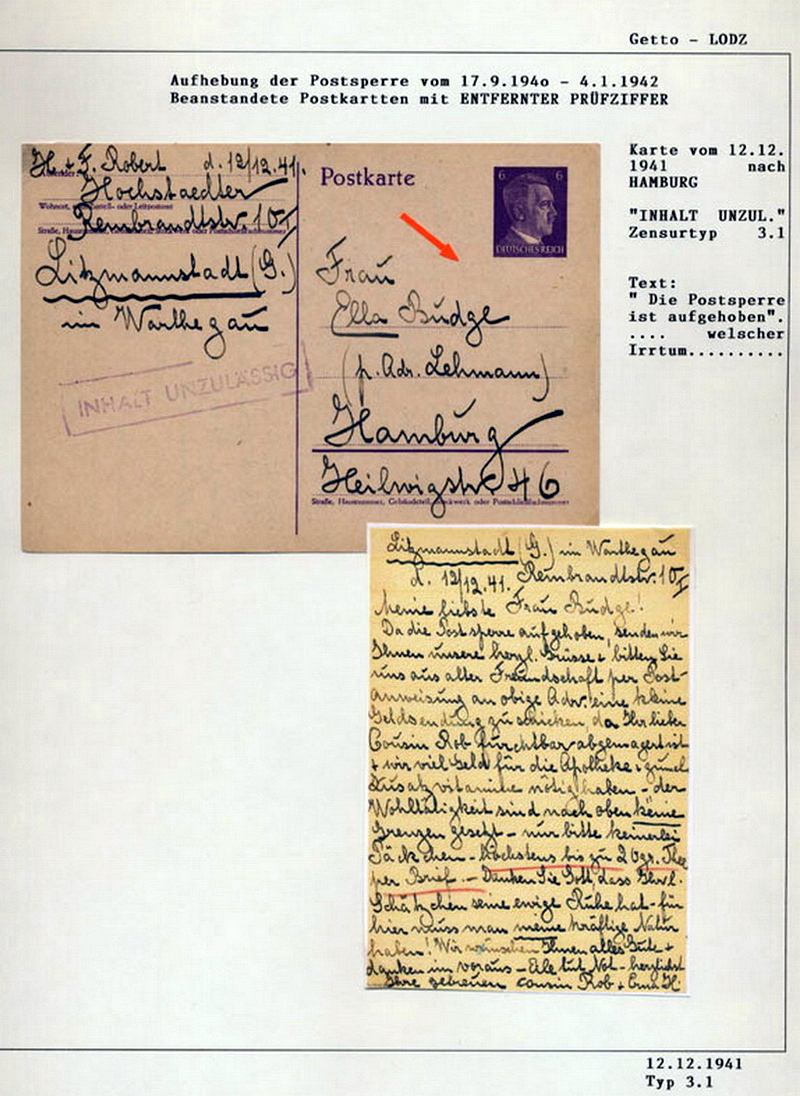 Getto - LODZ
Aufhebung der Postsperre vom 17.9.194o - 4.1.1942
Beanstandete Postkartten mit ENTFERNTER PRÜFZIFFER
Karte vom 12.12.
1941 nach
HAMBURG
"INHALT UNZUL."
Zensurtyp 3.1
Text:
" Die Postsperre
ist aufgehoben".
.... welscher
Irrtum..........
H. + F. Robert d. 12/12.41.
Hochstaedter
Wohnort, oder Leitpostamt
Rembrandtstr. 10 I
Straße,
Litzmannstadt (G.)
im Warthegau
INHALT UNZULÄSSIG
Postkarte
6 6
DEUTSCHES REICH
Frau
Ella Budge
(p. Adr. Lehmann)
Hamburg
Heilwigstr. 46
Straße, Hausnummer, Gebäudeteil, Stockwerk oder Postschließfachnummer
Litzmannstadt (G.) im Warthegau
d. 12/12.41. Rembrandtstr. 10 I
Meine liebste Frau Budge!
Da die Postsperre aufgehoben, senden wir
Ihnen unsere herzl. Grüsse + bitten Sie
uns aus alter Freundschaft per Post-
anweisung an obige Adr. eine kleine
Geldsendung zu schicken, da Ihr lieber
Cousin Rob furchtbar abgemagert ist
+ wir viel Geld für die Apotheke +
Zusatzvitamine nötig haben - der
Wohltätigkeit sind nach oben keine
Grenzen gesetzt - nur bitte keinerlei
Päckchen - höchstens bis zu 20gr. Thee
per Brief. - Danken Sie Gott, dass Ihr l.
Schätzchen seine ewige Ruhe hat - für
hier muss man meine kräftige Natur
haben! Wir wünschen Ihnen alles Gute +
danken im voraus - Eile tut Not - herzlichst
Ihre getreuen Cousin Rob + Erna H.
12.12.1941
Typ 3.1